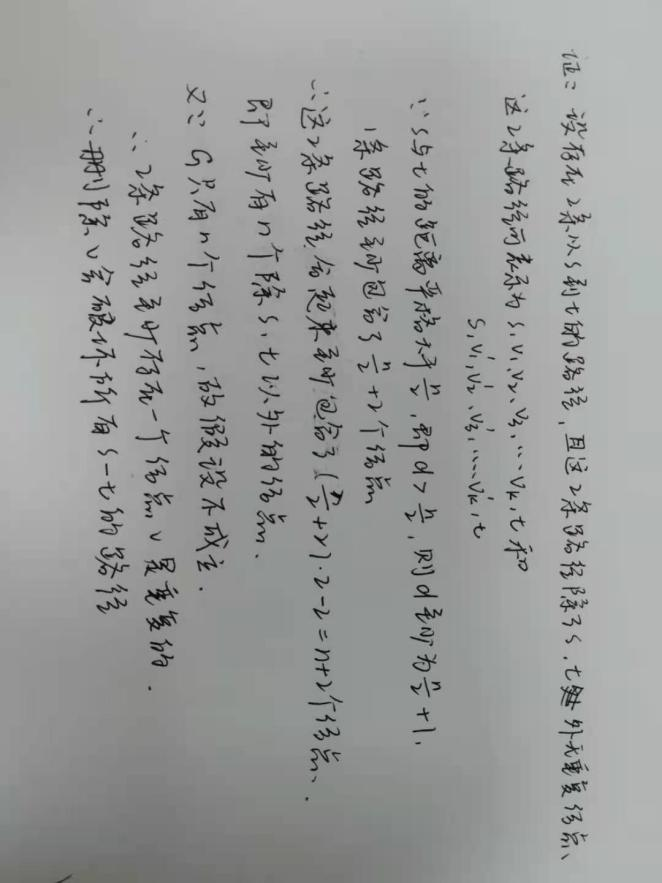 证: 设存在2条从s到t的路径, 且这2条路径除了s,t 外无重复结点、
这2条路径可表示为 s,v₁,v₂,v₃,…vₖ,t 和
s,v₁',v₂',v₃',…vₖ',t
∵s与t的距离严格大于n/2, 即d>n/2, 则d至少为n/2+1.
1条路径至少包含了n/2+2个结点
∴这2条路径合起来至少包含了(n/2+2)·2-2=n+2个结点、.
即至少有n个除s,t以外的结点、
又∵ G只有n个结点, 故假设不成立.
∴ 2条路径至少存在一个结点v是重复的.
∴ 删除v会破坏所有s-t的路径